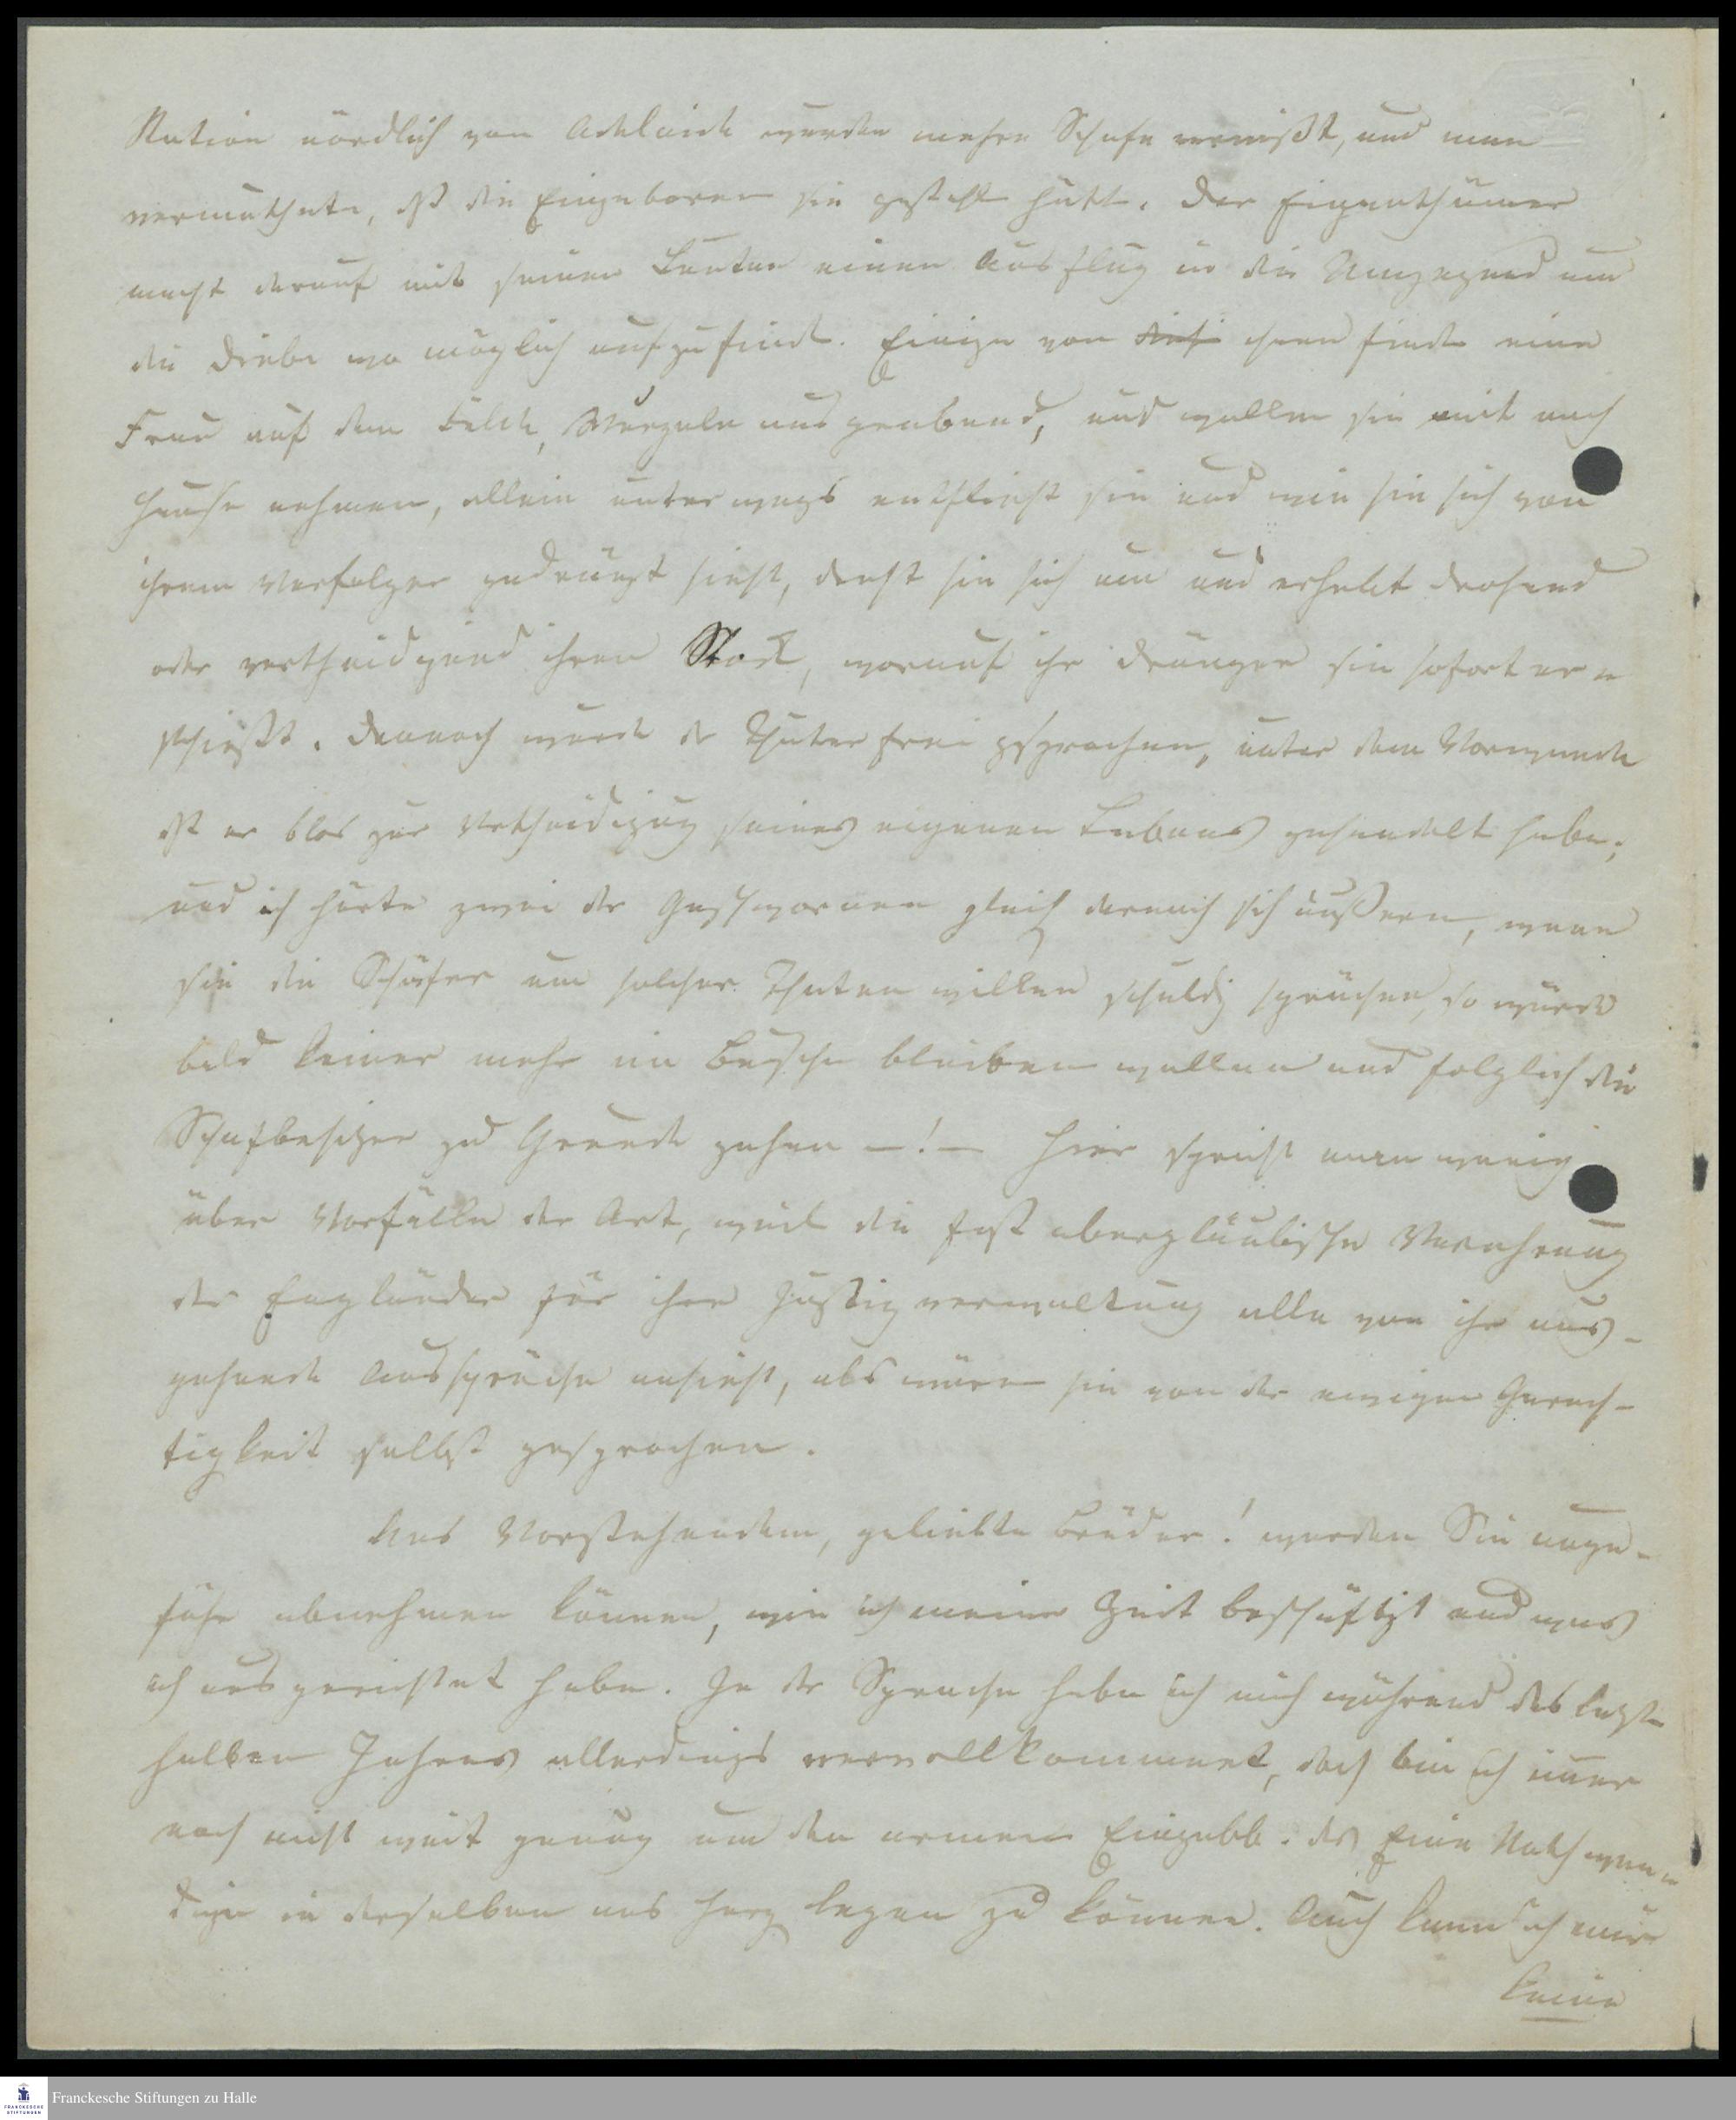 Station nördlich von Adelaide wurden mehre Schafe vermißt, und man
vermuthete, dß die Eingeboren sie gestohl hätt. Der Eigenthümer
macht darauf mit seinen Leuten einen Ausflug in die Umgegend um
die Diebe wo möglich aufzufind. Einige von dies ihnen finden eine
Frau auf dem Felde, Wurzeln ausgrabend, und wollen sie mit nach
Hause nehmen, allein unterwegs entflieht sie und wie sie sich von
ihrem Verfolger gedrängt sieht, dreht sie sich um und erhebt drohend
oder vertheidigend ihren Stock, worauf ihr Dränger sie sofort er=
schießt. Dennoch wurde dr Thäter frei gesprochen, unter dem Vorwande
dß er blos zur Vertheidigug seines eigenen Lebens gehandelt habe;
und ich hörte zwei der Geschwornen gleich darnach sich äußern, wenn
sie die Schäfer um solcher Thaten willen schuldig sprächen, so würde
bald keiner mehr im Busche bleiben wollen und folglich die
Schafbesitzer zu Grunde gehen -!- Hier spricht man wenig
über Vorfälle der Art, weil die fast abergläubische Verehrung
der Engländer für ihre Justizverwaltung alle von ihr aus-
gehende Aussprüche ansieht, als wären sie von der ewigen Gerech-
tigkeit selbst gesprochen.
Aus Vorstehendem, geliebte Brüder! werden Sie unge-
fähr abnehmen können, wie ich meine Zeit beschäftigt und was
ich ausgerichtet habe. In der Sprache habe ich mich während des letzten
halben Jahres allerdings vervollkommnet, doch bin ich immer
noch nicht weit genug um den armen Eingebb. das Eine Nothwen=
dige in derselben ans Herz legen zu können. Auch kann ich mir
keine
Franckesche Stiftungen zu Halle
FRANCKESCHE
STIFTUNGEN